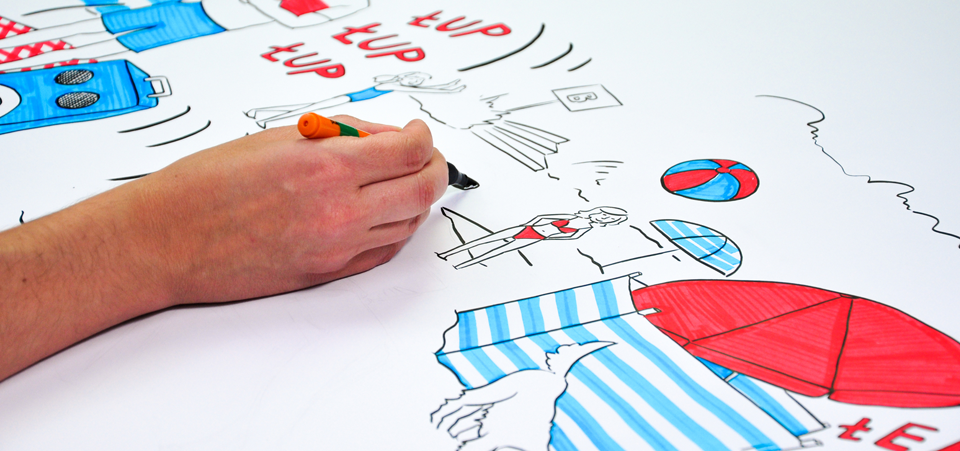 tUP
tUP
tUP
B
tE